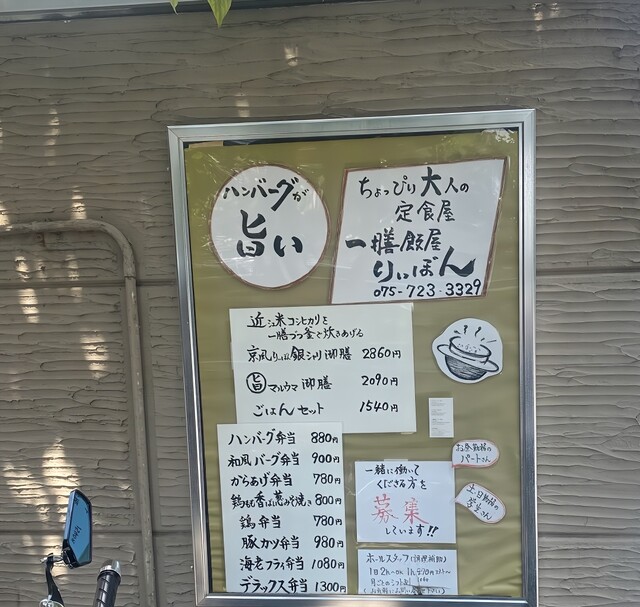 ハンバーグが
旨い
ちょっぴり大人の
定食屋
一膳飯屋
りぼん
075-723-3329
近江米コシヒカリを
一膳づつ釜で炊きあげる
銀シャリ御膳 2860円
旨 マルウマ御膳 2090円
ごはんセット 1540円
ハンバーグ弁当 880円
和風バーグ弁当 900円
からあげ弁当 780円
鶏もも香ばし葱みそ焼き 800円
鶏弁当 780円
豚カツ弁当 980円
海老フライ弁当 1080円
デラックス弁当 1300円
お昼勤務の
パートさん
一緒に働いて
くださる方を
募集
しています!!
土日勤務の
学生さん
ホールスタッフ
1日2h〜OK